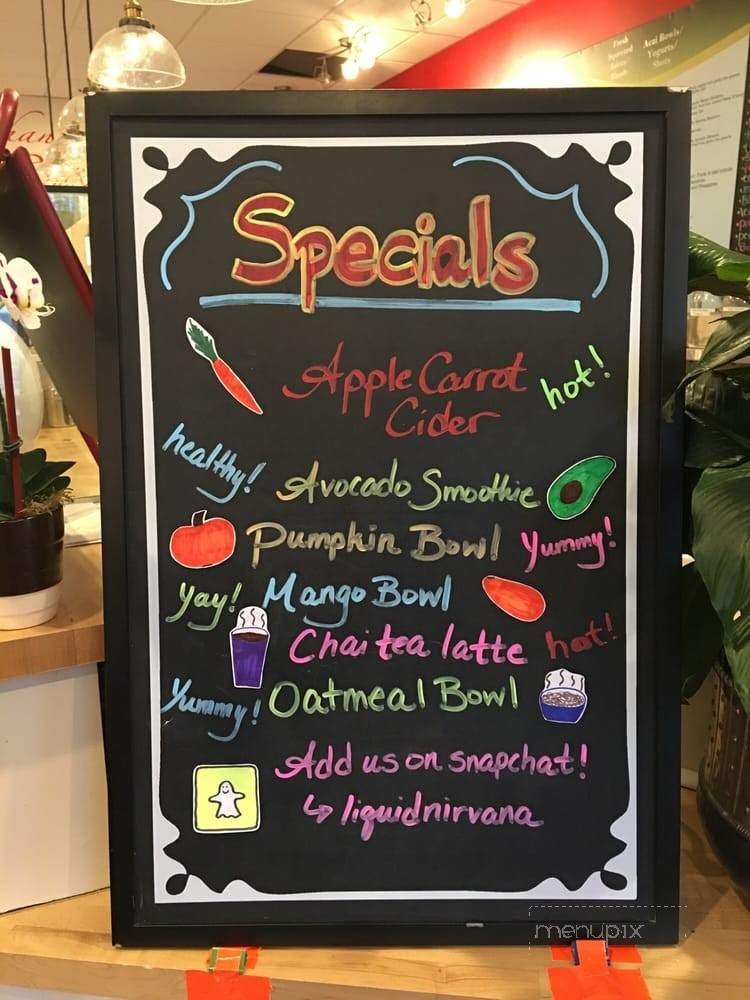 Fresh Squeezed
Acai Bowls/
Yogurts/
Specials
Apple Carrot hot!
Cider
healthy!
Avocado Smoothie
Pumpkin Bowl Yummy!
Yay! Mango Bowl
Chai tea latte hot!
Yummy! Oatmeal Bowl
Add us on snapchat!
↳ liquidnirvana
menupix